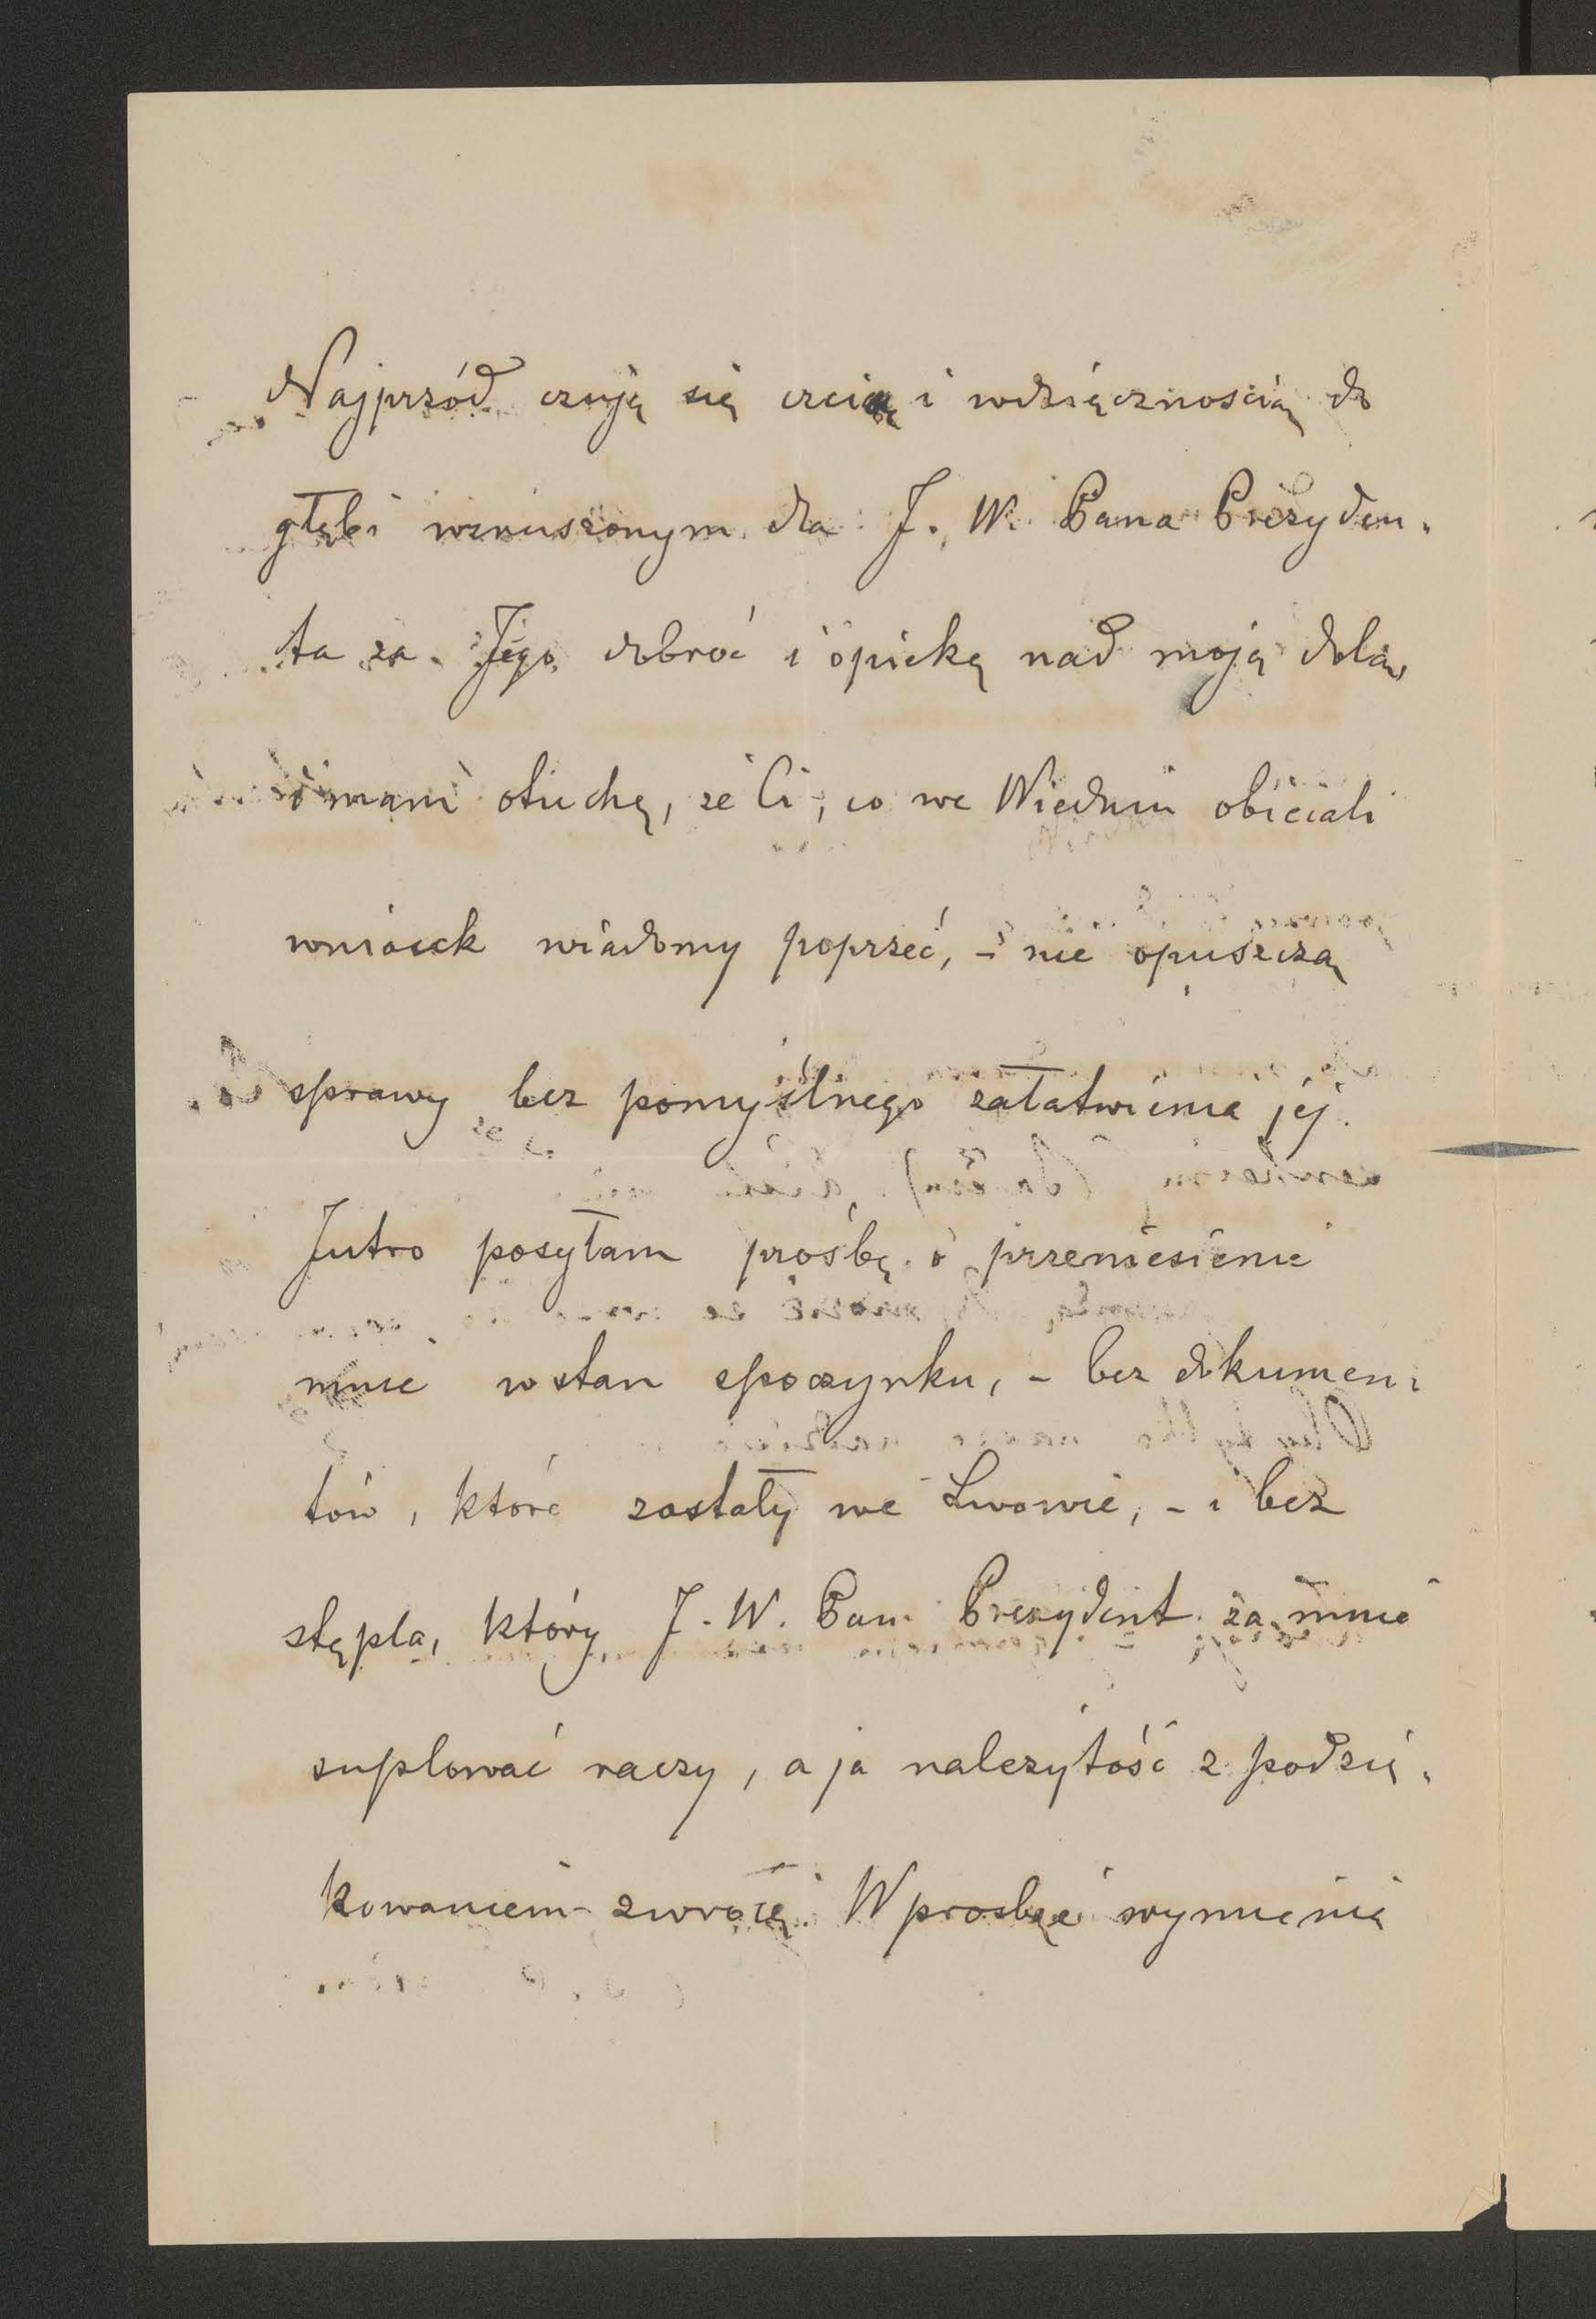 Najprzód czuję się czcią i wdzięcznością do
głębi wzruszonym dla J. W. Pana Prezyden-
ta za Jego dobroć i opiekę nad moją dolą,
i mam otuchę, że Ci, co we Wiedniu obiecali
wniosek wiadomy poprzeć, – nie opuszczą
sprawy bez pomyślnego załatwienia jéj.
Jutro posyłam prośbę o przeniesienie
mnie w stan spoczynku, – bez dokumen-
tów, które zostały we Lwowie, – i bez
stępla, który J. W. Pan Prezydent za mnie
suplować raczy, a ja należytość z podzię-
kowaniem zwrócę. W prośbie wymienię